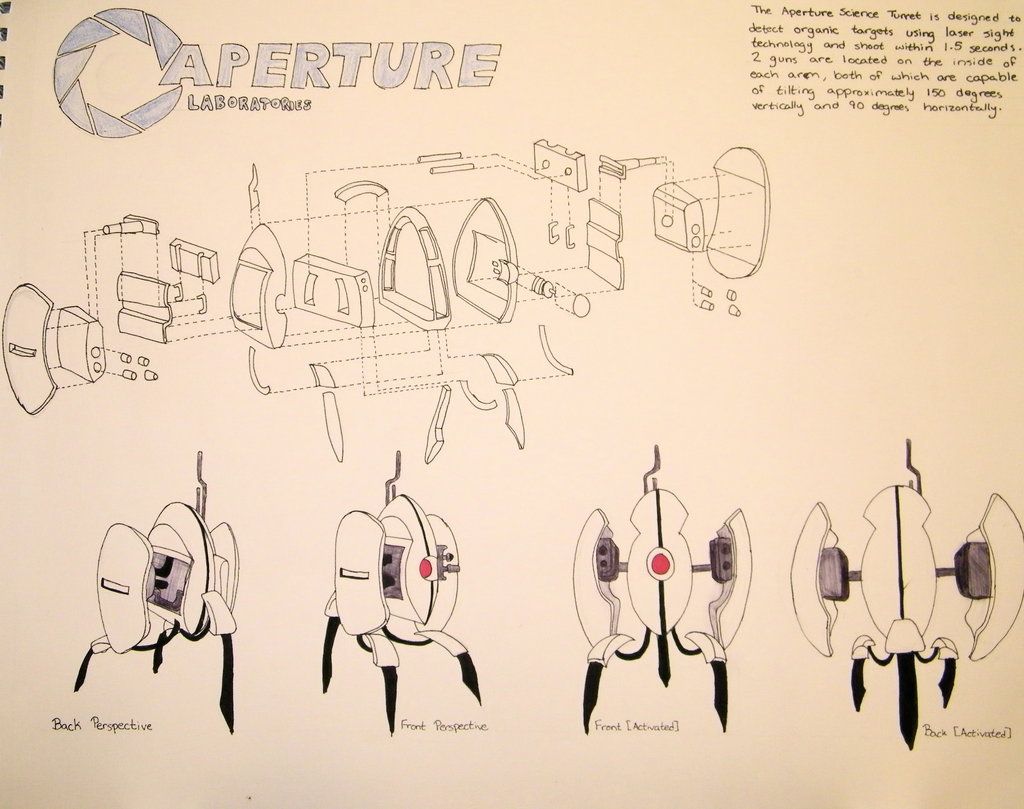 APERTURE
LABORATORIES
The Aperture Science Turret is designed to
detect organic targets using laser sight
technology and shoot within 1.5 seconds.
2 guns are located on the inside of
each arm, both of which are capable
of tilting approximately 150 degrees
vertically and 90 degrees horizontally.
Back Perspective
Front Perspective
Front [Activated]
Back [Activated]